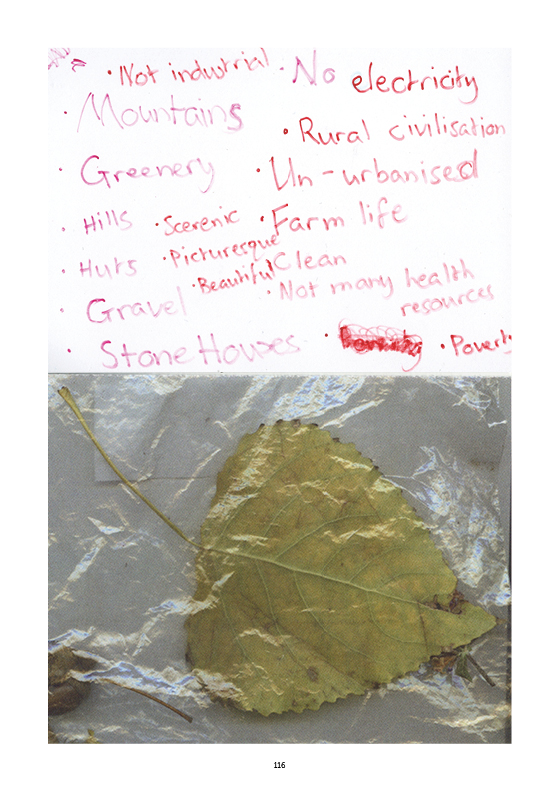 · Not industrial
· No electricity
· Mountains
· Rural civilisation
· Greenery
· Un-urbanised
· Hills
· Scerenic
· Farm life
· Huts
· Picturesque
· Clean
· Beautiful
· Not many health
resources
· Gravel
· Stone Houses
· Poverty
116